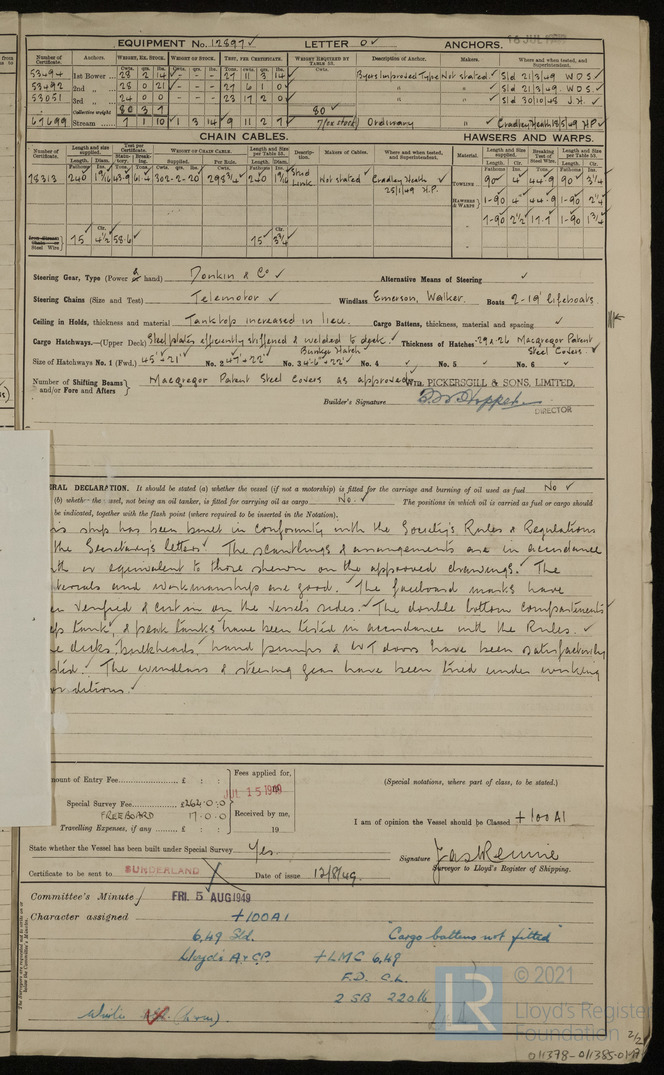 EQUIPMENT No. 12897 ✓ LETTER O ✓ ANCHORS.
Number of Certificate. Anchors. WEIGHT, EX. STOCK. WEIGHT OF STOCK. TEST, PER CERTIFICATE. WEIGHT REQUIRED BY TABLE 53. Description of Anchor. Makers. Where and when tested, and Superintendent.
53494 1st Bower 28 2 14 ✓ - - - 27 11 3 14 ✓ Byers Improved Type Not stated. ✓ Sld 21/3/49 W O S ✓
53492 2nd " 28 0 21 ✓ - - - 27 6 1 0 ✓ " " Sld 21/3/49 W.O.S. ✓
53051 3rd " 24 0 0 ✓ - - - 23 17 2 0 ✓ " " Sld 30/10/48 J.H. ✓
Collective weight 80 3 7 80 ✓
67699 Stream 7 1 10 ✓ 1 3 14 ✓ 9 11 2 7 ✓ 7 (ex stock) Ordinary " ✓ Cradley Heath 18/5/49 H.P. ✓
CHAIN CABLES. HAWSERS AND WARPS.
Number of Certificate. Length and size supplied. Test per Certificate. WEIGHT OF CHAIN CABLE. Length and Size per Table 53. Description. Makers of Cables. Where and when tested, and Superintendent. Material. Length and size supplied. Breaking Test of Steel Wire. Length and Size per Table 53.
Length. Diam. Supplied. Per Rule. Length. Diam. Length. Cir. Length. Cir.
78313 240 1 9/16 43·9 61·4 302-2-20 ✓ 295 3/4 ✓ 240 1 9/16 Stud Link Not stated ✓ Cradley Heath ✓ 25/1/49 H.P. TOWLINE 90 4 44·9 90 3 1/4
HAWSERS & WARPS 1-90 4 44·9 1-90 2 1/4
1-90 2 1/2 17·7 1-90 1 3/4
Steel Wire 75 4 1/2 58·6 ✓ 75 3 3/4
Steering Gear, Type (Power & hand) Donkin & Co ✓ Alternative Means of Steering ✓
Steering Chains (Size and Test) Telemotor ✓ Windlass Emerson, Walker. Boats 2-19' lifeboats
Ceiling in Holds, thickness and material Tanktop increased in lieu. Cargo Battens, thickness, material and spacing ✓
Cargo Hatchways.—(Upper Deck) Steelplates efficiently stiffened & welded to deck. ✓ Thickness of Hatches ·29 & ·26 Macgregor Patent Steel Covers. ✓
Bunker Hatch
Size of Hatchways No. 1 (Fwd.) 45' × 21' No. 2 47' × 22' No. 3 4'-6" × 22' No. 4 ✓ No. 5 ✓ No. 6 ✓
Number of Shifting Beams and/or Fore and Afters } Macgregor Patent Steel Covers as approved ✓
WM. PICKERSGILL & SONS, LIMITED.
Builder's Signature
DIRECTOR
RAL DECLARATION. It should be stated (a) whether the vessel (if not a motorship) is fitted for the carriage and burning of oil used as fuel No ✓
(b) whether the vessel, not being an oil tanker, is fitted for carrying oil as cargo No. ✓ The positions in which oil is carried as fuel or cargo should
be indicated, together with the flash point (where required to be inserted in the Notation).
is ship has been built in conformity with the Society's Rules & Regulations
the Secretary's letters ✓ The scantlings & arrangements are in accordance
th or equivalent to those shewn on the approved drawings. ✓ The
terials and workmanship are good. ✓ The freeboard marks have
en verified & cut in on the vessels sides. ✓ The double bottom compartments ✓
ep tank ✓, & peak tanks ✓ have been tested in accordance with the Rules. ✓
e decks, bulkheads, hand pumps & W T doors have been satisfactorily
sted. ✓ The windlass & steering gear have been tried under working
nditions. ✓
ount of Entry Fee £ : : Fees applied for,
JUL 15 1949
Special Survey Fee £264·0·0
FREEBOARD 17·0·0 Received by me,
Travelling Expenses, if any £ : : 19
(Special notations, where part of class, to be stated.)
I am of opinion the Vessel should be Classed +100A1
State whether the Vessel has been built under Special Survey Yes.
Signature Jas Rennie
Surveyor to Lloyd's Register of Shipping.
Certificate to be sent to SUNDERLAND Date of issue 12/8/49.
Committee's Minute FRI. 5 AUG 1949
Character assigned +100A1
6,49 Sld. "Cargo battens not fitted"
Lloyd's A & CP. +LMC 6,49
F.D. C.L.
2 SB 220 lb
© 2021
LR
Lloyd's Register
Foundation
2/2
011378-011385-01